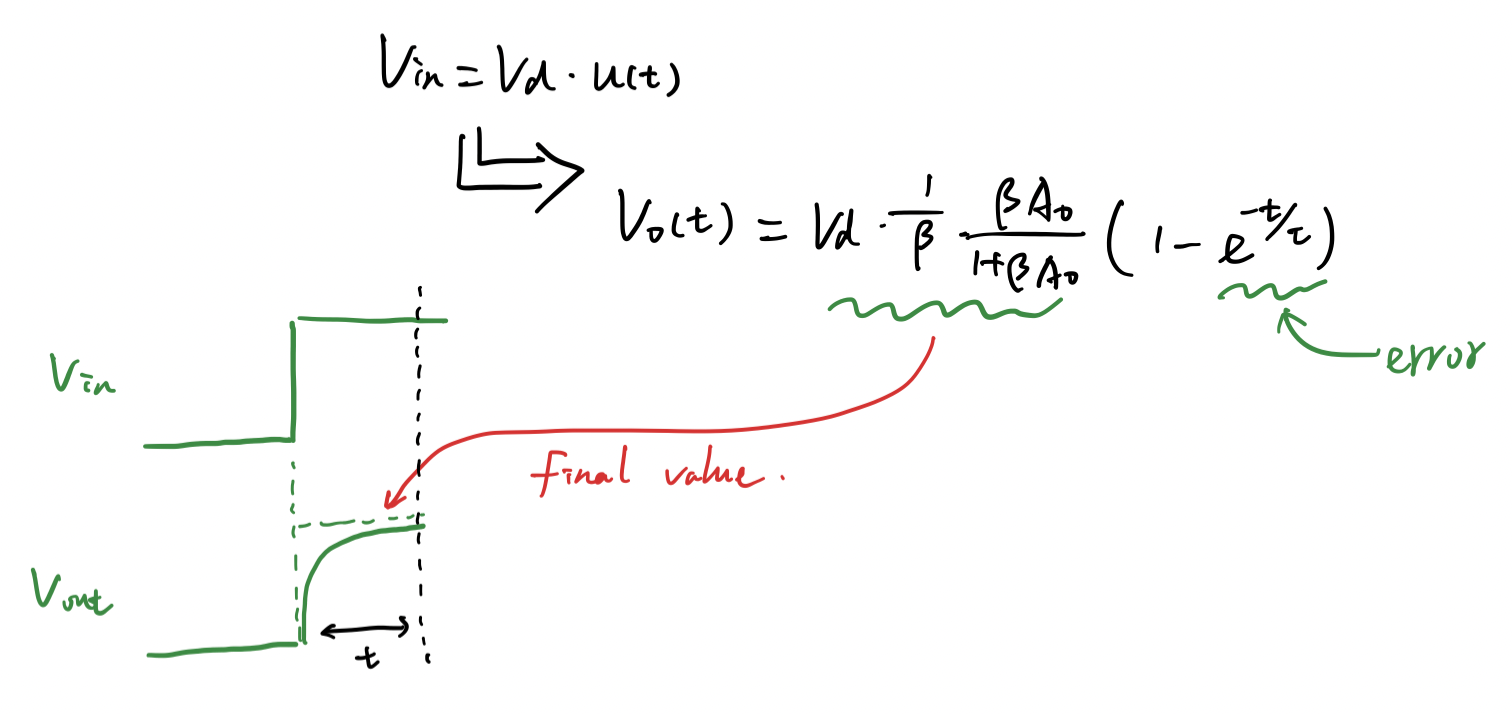 Vin = Vd · u(t)
Vo(t) = Vd · 1/β · βA₀/(1+βA₀) (1 - e^(-t/τ))
error
Vin
final value.
Vout
t